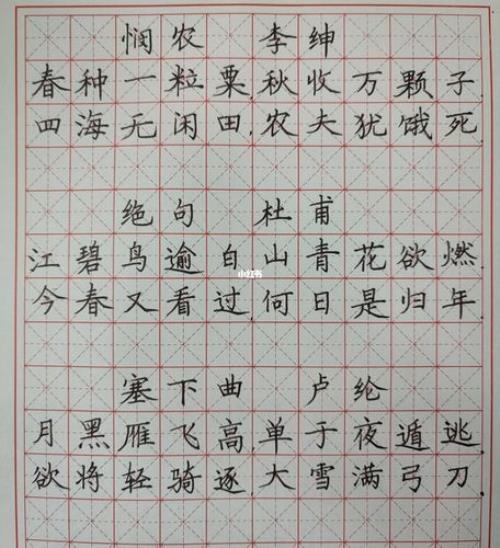 悯农 李绅
春种一粒粟,秋收万颗子.
四海无闲田,农夫犹饿死.
绝句 杜甫
江碧鸟逾白,山青花欲燃.
小红书
今春又看过,何日是归年.
塞下曲 卢纶
月黑雁飞高,单于夜遁逃.
欲将轻骑逐,大雪满弓刀.